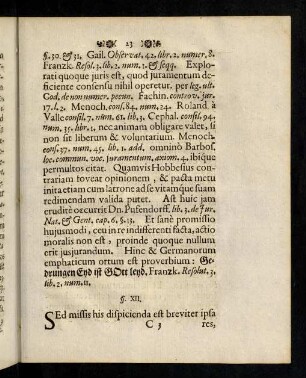 23
§. 30. & 31. Gail. Observat. 42. libr. 2. numer. 8.
Franzk. Resol. 3. lib. 2. num. 1. & seqq. Explo-
rati quoque juris est, quod juramentum de-
ficiente consensu nihil operetur, per leg. ult.
God. de non numer. pecun. Fachin. controv. jur.
17. l. 2. Menoch. cons. 84. num. 24. Roland. à
Valle consil. 7. num. 61. lib. 3. Cephal. consil. 94.
num. 35. libr. 1. nec animam obligare valet, si
non sit liberum & voluntarium. Menoch.
cons. 37. num. 45. lib. 1. add. omninò Barbos.
loc. commun. voc. Juramentum, axiom. 4. ibique
permultos citat. Quamvis Hobbesius con-
trariam foveat opinionem, & pacta metu
inita etiam cum latrone ad se vitamque suam
redimendam valida putet. Ast huic jam
eruditè occurrit Dn. Pufendorff. lib. 3. de Jur.
Nat. & Gent, cap. 6. §. 13. Et sanè promissio
hujusmodi, ceu in re indifferenti facta, actio
moralis non est, proinde quoque nullum
erit jusjurandum. Hinc & Germanorum
emphaticum ortum est proverbium: Ge-
drungen Eyd ist GOtt leyd. Franzk. Resolut. 3.
lib. 2. num. 11.
§. XII.
SEd missis his dispicienda est breviter ipsa
C 3 res,